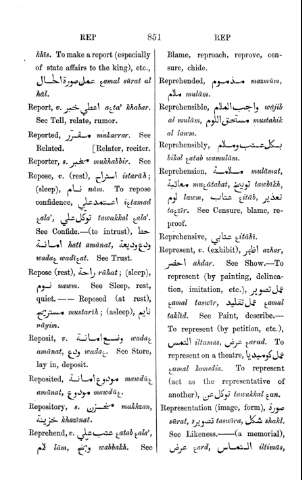 REP 851 REP
kâts. To make a report (especially
of state affairs to the king), etc.,
عمل صورة احال çamal sûrat al
hâl.
Report, v. اعطي خبر açta' khabar.
See Tell, relate, rumor.
Reported, مقرّر mukarrar. See
Related. [Relater, reciter.
Reporter, s. مخبر mukhbbir. See
Repose, v. (rest) استراح istarâh;
(sleep), نام nâm. To repose
confidence, اعتمد علي çtamad
çala', توكل علي tawakkal çala'.
See Confide.—(to intrust), حط
امانة hatt amânat, ودع وديعة
wadaç wadîçat. See Trust.
Repose (rest), راحة râhat; (sleep),
نوم nawm. See Sleep, rest,
quiet.—— Reposed (at rest),
مستريح mustarîh; (asleep), نايم
nâyim.
Reposit, v. وضع امانة wadaç
amânat, ودع wadaç. See Store,
lay in, deposit.
Reposited, مودوع امانة mawdûç
amânat, مودوع mawdûç.
Repository, s. مخزن makhzan,
خزينة khazînat.
Reprehend, v. عتب علي çatab çala',
لام lâm, وبخ wabbakh. See
Blame, reproach, reprove, cen-
sure, chide.
Reprehended, مذموم mazmûm,
ملام mulâm.
Reprehensible, واجب الملام wâjib
al mulâm, مستحق اللوم mustahik
al lawm.
Reprehensibly, بكل عتب وملام
bikol çatab wamulâm.
Reprehension, ملامة mulâmat,
معاتبة muçâtabat, توبيخ tawbîkh,
لوم lawm, عتاب çitâb, تعذير
taçzîr. See Censure, blame, re-
proof.
Reprehensive, عتابي çitâbi.
Represent, v. (exhibit), اظهر azhar,
احضر ahdar. See Show.—To
represent (by painting, delinea-
tion, imitation, etc.), عمل تصوير
çamal taswîr, عمل تقليد çamal
taklîd. See Paint, describe.—
To represent (by petition, etc.),
التمس iltamas, عرض çarad. To
represent on a theatre, عمل كوميديا
çamal komedia. To represent
(act as the representative of
another), توكل عن tawakkal çan.
Representation (image, form), صورة
sûrat, تصوير taswîra, شكل shakl.
See Likeness.——(a memorial),
عرض çard, التماس iltimâs,